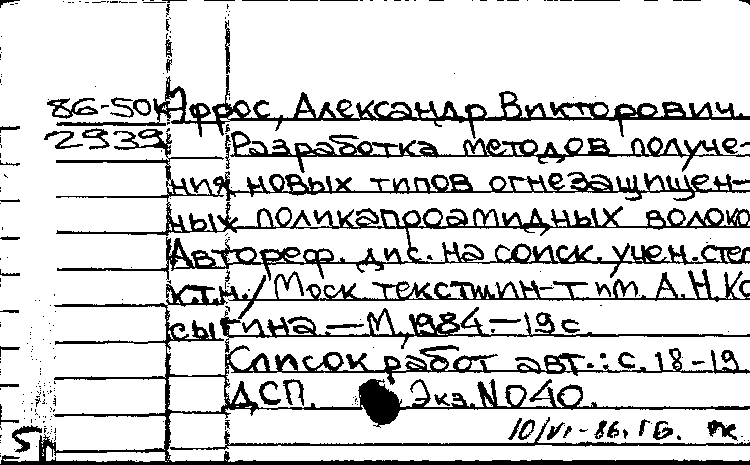 86-50к Эфрос, Александр Викторович.
2939 Разработка методов получе-
ния новых типов огнезащищен-
ных поликапроамидных волоко
Автореф. дис. на соиск. учен. степ
к.т.н./Моск текстин-т им. А.Н.Ко
сыгина.—М,1984.—19с.
Список работ авт.: с. 18-19
ДСП. Экз.N040.
10/VI-86. ГБ.